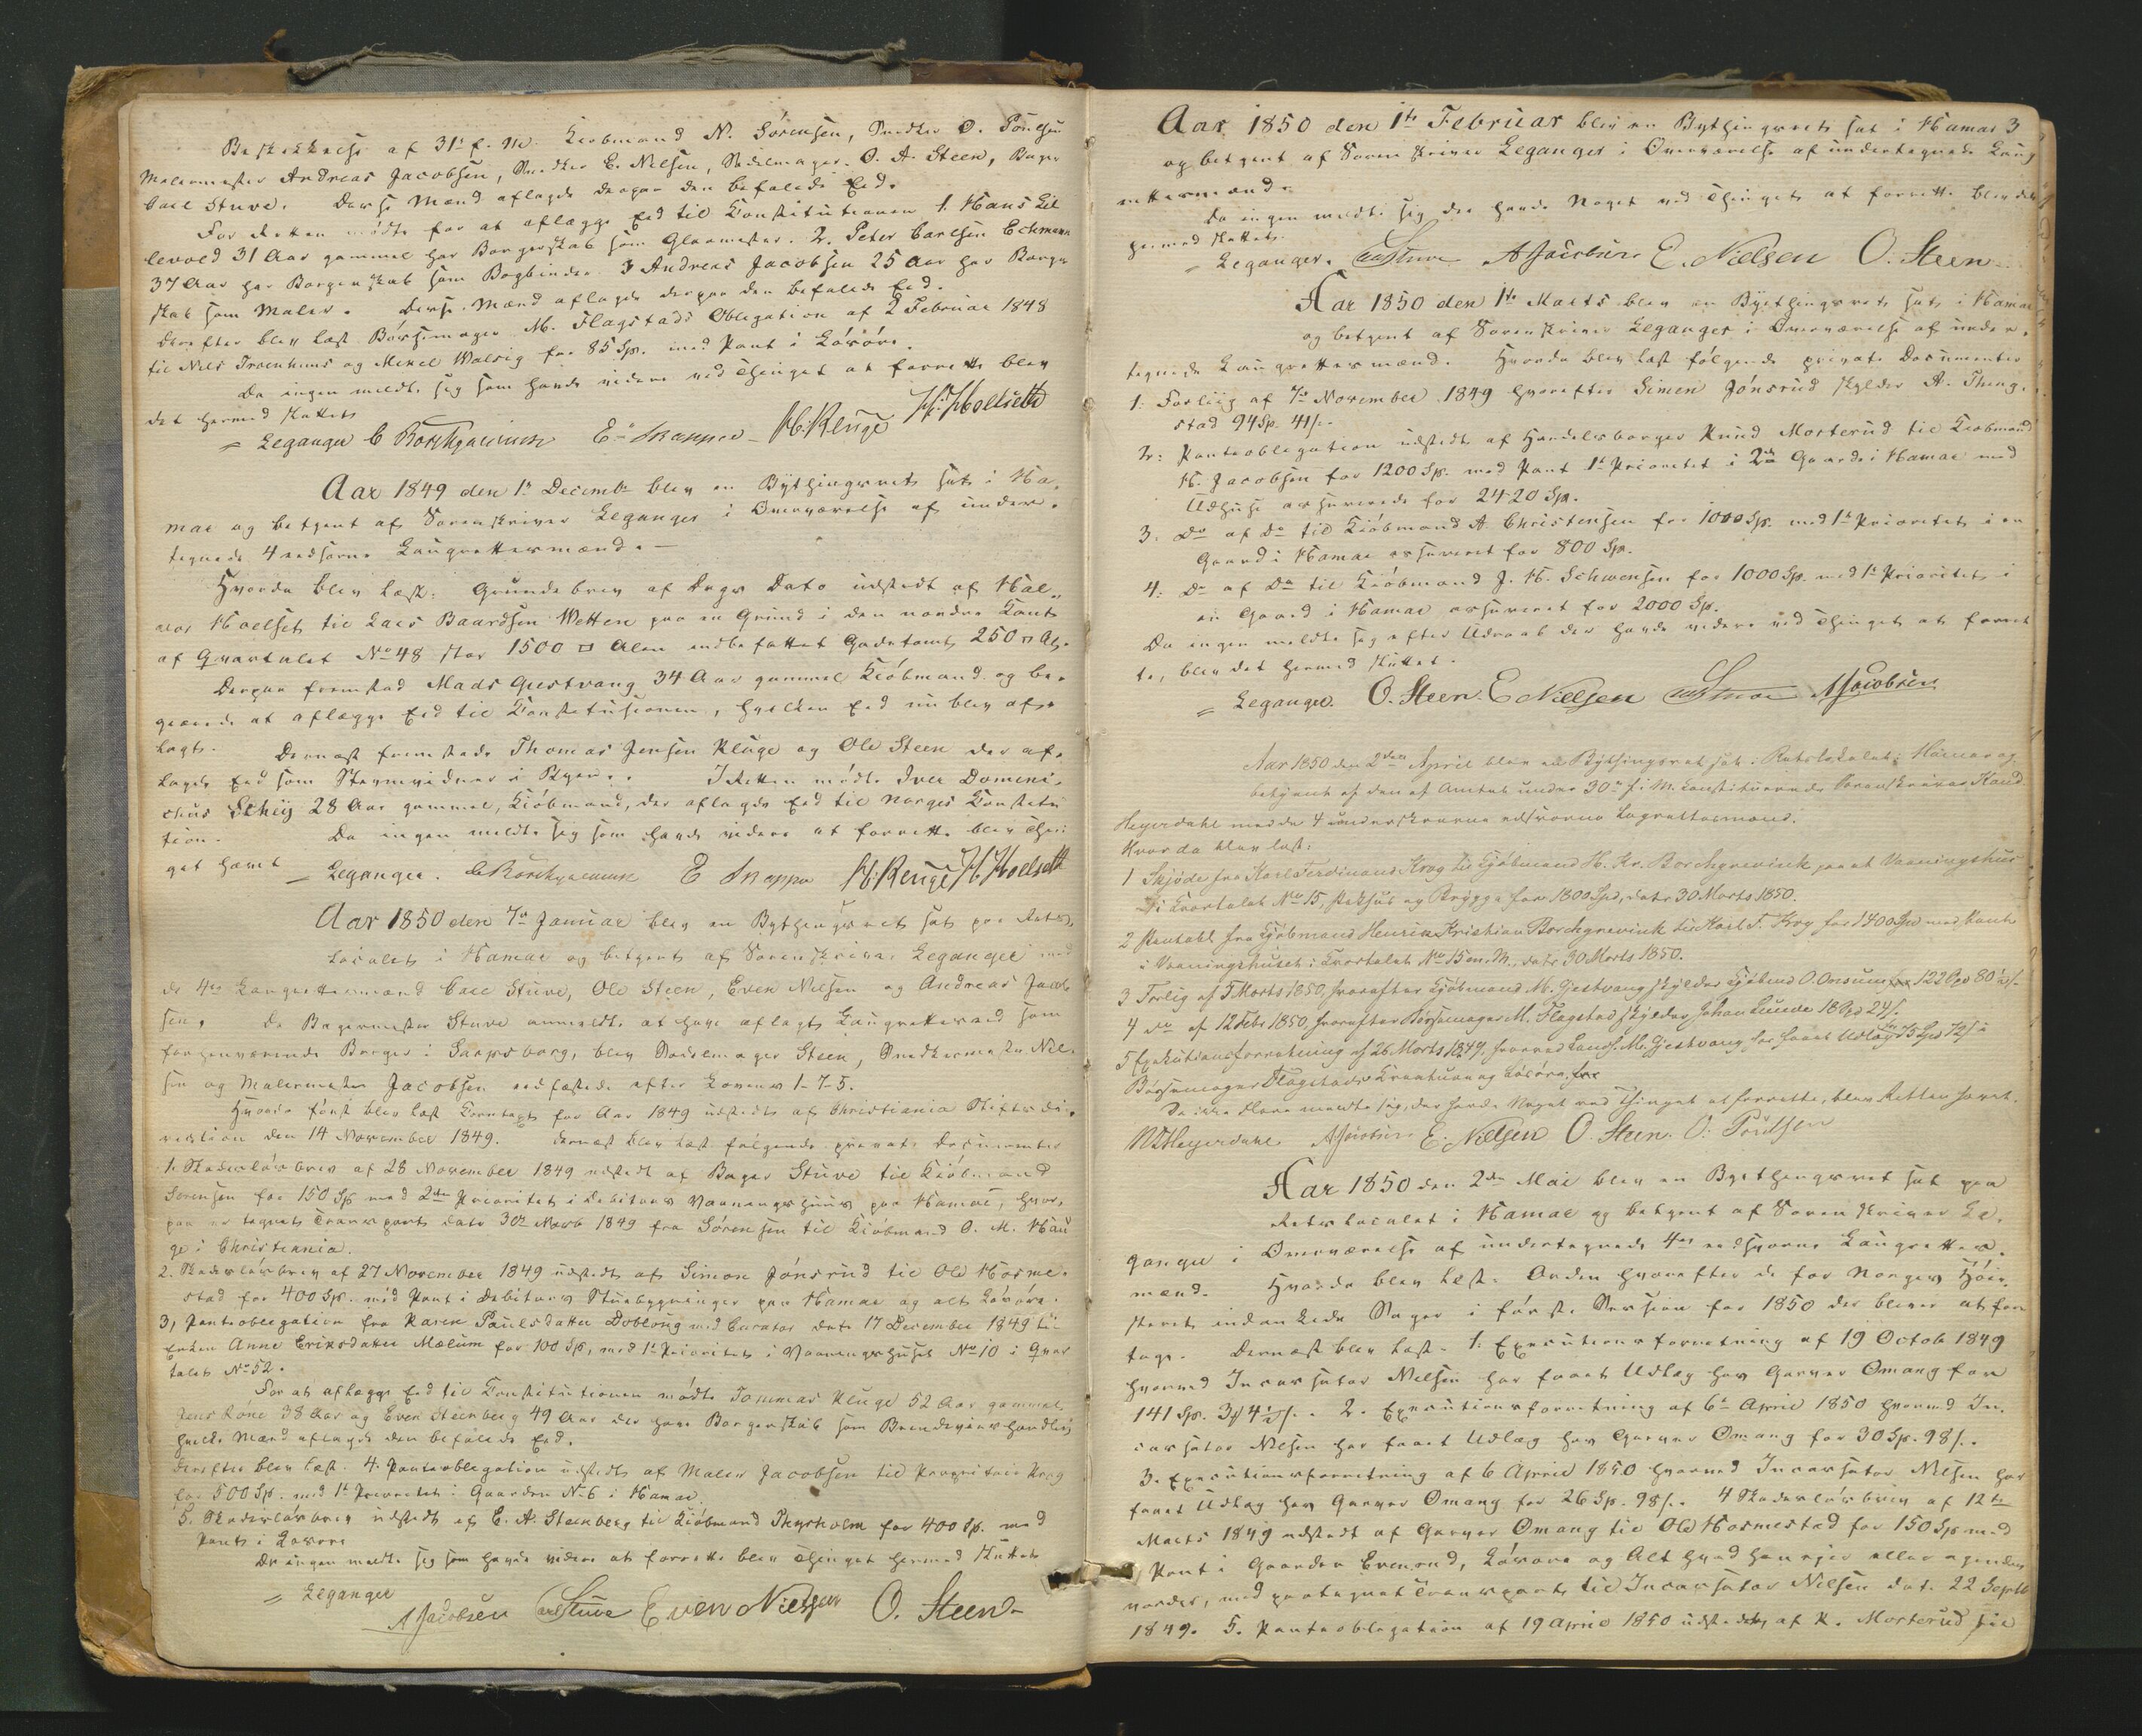 Beskikkelse af 31t f. M. Kiøbmand N. Sørensen, Snedker O. Poulsen
Malermester Andreas Jacobsen, Snedker E. Nielsen, Sadelmager O. A. Steen, Bager
Carl Stuve. Disse Mænd aflagde derpaa den befalede Eed.
For Retten mødte for at aflægge Eed til Constitutionen 1. Hans Lil
levold 31 Aar gammel har Borgerskab som Glarmester. 2. Peter Carlsen Echmann
37 Aar har Borgerskab som Bogbinder 3 Andreas Jacobsen 25 Aar har Borger
skab som Maler. Disse Mænd aflagde derpaa den befalede Eed.
Derefter blev læst Børsemager M. Flagstads Obligation af 2 Februar 1848
til Nels Troenhuus og Mikel Walsig for 85 Sp. med Pant i Løsøre.
Da ingen meldte sig som havde videre ved Thinget at forrette blev
det hermed sluttet
= Leganger C Borchgrevink E. Knappe H. Kluge H. Hoelseth
Aar 1849 den 1t Decembr blev en Bythingsret sat i Ha-
mar og betjent af Sorenskriver Leganger i Overværelse af under-
tegnede 4 eedsorne Laugrettesmænd. —
Hvorda blev læst: Grundebrev af Dags Dato udstedt af Hal-
vor Hoelset til Lars Baardsen Wetten paa en Grund i den nordre Kant
af Qvartalet No 48 stor 1500 □ Alen indbefattet Gadetomt 250 □ Al.
Derpaa fremstod Mads Giestvang 34 Aar gammel Kiøbmand og be-
gjærede at aflægge Eed til Constitusionen, hvilken Eed nu blev af-
lagt. Dernæst fremstode Thomas Jensen Kluge og Ole Steen der af-
lagde Eed som Stevnevidner i Byen. I Retten mødte Iver Domini-
chus Schiij 28 Aar gammel, Kiøbmand, der aflagde Eed til Norges Constitu
tion. Da ingen meldte sig som havde videre at forrette blev Thin
get hævet = Leganger. C Borchgrevink E Knappe H. Kluge H. Hoelseth
Aar 1850 den 7de Januar blev en Bythingsret sat paa Rets-
localet i Hamar og betjent af Sorenskriver Leganger med
de 4re Laugrettesmænd Carl Stuve, Ole Steen, Even Nielsen og Andreas Jacob
sen. Da Bagermester Stuve anmeldte at have aflagt Laugrettesed som
forhenværende Borger i Sarpsborg, blev Sadelmager Steen, Snedkermester Niel-
sen og Malermester Jacobsen eedfæstede efter Lovens 1-7-5.
Hvorda først blev læst Korntaxt for Aar 1849 udstedt af Christiania Stiftsdi-
rection den 14 November 1849. dernæst blev læst følgende private Documenter
1. Skadesløsbrev af 28 November 1849 udstedt af Bager Stuve til Kiøbmand
Sørensen for 150 Sp med 2den Prioritet i Debitors Vaaningshuus paa Hamar, hvor-
paa er tegnet Transport dato 30te Novb 1849 fra Sørensen til Kiøbmand O. M. Hau
ge i Christiania.
2. Skadesløsbrev af 27 November 1849 udstedt af Simon Jønsrud til Ole Hosme-
stad for 400 Sp. med Pant i Debitors Stuebygninger paa Hamar og alt Løsøre.
3, Panteobligation fra Karen Paulsdatter Doblong med Curator dato 17 December 1849 til
Enken Anne Eriksdatter Mælum for 100 Sp, med 1t Prioritet i Vaaningshuset No 10 i Qvar
talet No 52.
For at aflægge Eed til Constitutionen mødte Tommas Kluge 52 Aar gammel,
Jens Rone 38 Aar og Even Steenberg 49 Aar der have Borgerskab som Brendeviinshandler
hvilke Mænd aflagde den befalede Eed.
derefter blev læst. 4. Panteobligation udstedt af Maler Jacobsen til Proprietair Krog
for 500 Sp. med 1t Prioritet i Gaarden No 6 i Hamar.
5. Skadesløsbrev udstedt af E. A. Steenberg til Kiøbmand Thyrholm for 400 Sp. med
Pant i Løsøre
Da ingen meldte sig som havde videre at forrette blev Thinget hermed sluttet
= Leganger
A Jacobsen Carl Stuve Even Nielsen O. Steen
Aar 1850 den 1te Februar blev en Bythingsret sat i Hamar 3
og betjent af Sorenskriver Leganger i Overværelse af undertegnede Laug
rettesmænd.
Da ingen meldte sig der havde Noget ved Thinget at forrette blev det
hermed sluttet.
= Leganger. Carl Stuve A Jacobsen E. Nielsen O. Steen
Aar 1850 den 1te Marts blev en Bythingsret sat i Hamar
og betjent af Sorenskriver Leganger i Overværelse af under-
tegnede Laugrettesmænd. Hvorda blev læst følgende private Documenter
1: Forliig af 7de November 1849 hvorefter Simen Jønsrud skylder A. Thing-
stad 94 Sp. 41 s.
2: Panteobligation udstedt af Handelsborger Knud Mosterud til Kiøbmand
H. Jacobsen for 1200 Sp. med Pant 1t Prioritet i 2de Gaarde i Hamar med
Udhuse assurerede for 2420 Sp.
3. Do af Do til Kiøbmand A. Christensen for 1000 Sp. med 1t Prioritet i en
Gaard i Hamar assureret for 800 Sp.
4. Do af Do til Kiøbmand J. H. Schwensen for 1000 Sp. med 1t Prioritet i
en Gaard i Hamar assureret for 2000 Sp.
Da ingen meldte sig efter Udraab der havde videre ved Thinget at forret
te, blev det hermed sluttet.
= Leganger. O. Steen. E Nielsen Carl Stuve A Jacobsen
Aar 1850 den 2den April blev en Bythingsret sat i Retslokalet i Hamar og
betjent af den af Amtet under 30te f. M. constituerede Sorenskriver Kand.
Heyerdahl med de 4 underskrevne edsvorne Lagrettesmænd.
Hvorda blev læst:
1 Skjøde fra Karl Ferdinand Krog til Kjøbmand H. Kr. Borchgrevink paa et Vaaningshus
i Kvartalet No 15, Pakhus og Brygge for 1800 Spd, datr 30 Marts 1850.
2 Pantobl. fra Kjøbmand Henrik Kristian Borchgrevink til Karl F. Krog for 1400 Spd med Pant
i Vaaningshuset i Kvartalet No 15 m. M., datr 30 Marts 1850.
3 Forlig af 5 Marts 1850, hvorefter Kjøbmand M. Gjestvang skylder Kjøbmd O. Onsum 122 Spd 80½ s.
4 do af 12 Febr 1850, hvorefter Børsemager M. Flagstad skylder Johan Lunde 18 Spd 24 s.
5 Exekutionsforretning af 26 Marts 1849, hvorved Landh. M. Gjestvang har faaet Udlæg for 75 Spd 72 s i
Børsemager Flagstads Kreaturer og Løsøre.
Da ikke Flere meldte sig, der havde Noget ved Thinget at forrette, blev Retten hævet.
Heyerdahl A Jacobsen E. Nielsen O. Steen. O. Poulsen
Aar 1850 den 2den Mai blev en Bythingsret sat paa
Retslocalet i Hamar og betjent af Sorenskriver Le-
ganger i Overværelse af undertegnede 4re eedsvorne Laugrettes-
mænd. Hvorda blev læst: Orden hvorefter de for Norges Høie-
steret indankede Sager i første Session for 1850 der bliver at fore
tage. Dernæst blev læst. 1. Executionsforretning af 19 Octob 1849
hvorved Incassator Nielsen har faaet Udlæg hos Garver Omang for
141 Sp. 3 4½ s. 2. Executionsforretning af 6te April 1850 hvorved In-
cassator Nielsen har faaet Udlæg hos Garver Omang for 30 Sp. 98 s.
3. Executionsforretning af 6 April 1850 hvorved Incassator Nielsen har
faaet Udlæg hos Garver Omang for 26 Sp. 98 s. 4 Skadesløsbrev af 12te
Marts 1849 udstedt af Garver Omang til Ole Hosmestad for 150 Sp med
Pant i Gaarden Evenrud, Løsøre og Alt hvad han ejer eller ejendes
vorder, med paategnet Transport til Incassator Nielsen dat. 22 Septb
1849. 5. Panteobligation af 19 April 1850 udstedt af K. Mosterud til